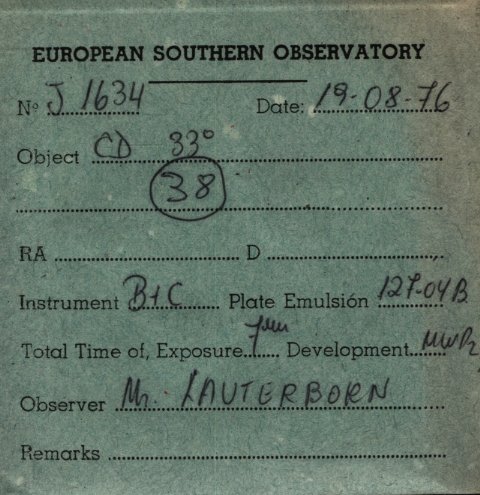 EUROPEAN SOUTHERN OBSERVATORY
Nº J 1634 Date: 19-08-76
Object CD 33°
38
RA D
Instrument B+C Plate Emulsión 127-04B
Total Time of, Exposure Development
Observer LAUTERBORN
Remarks